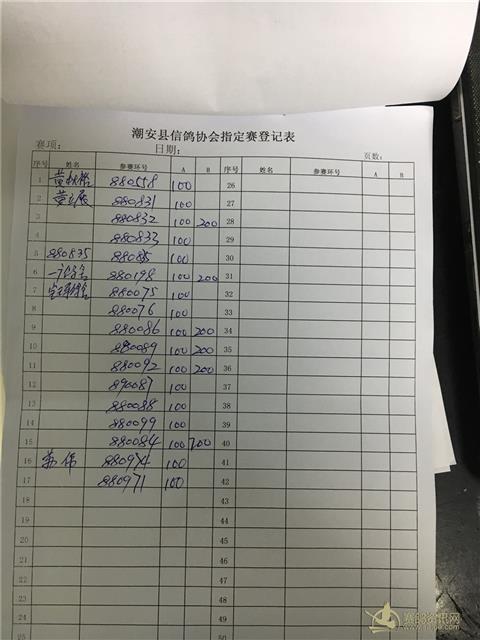 潮安县信鸽协会指定赛登记表
赛项： 日期： 页数：
序号 姓名 参赛环号 A B 序号 姓名 参赛环号 A B
1 880558 100 26
2 880831 100 27
3 880832 100 200 28
4 880833 100 29
5 880835 88085 100 30
6 880198 100 200 31
7 880075 100 32
8 880076 100 33
9 880086 100 200 34
10 880089 100 200 35
11 880092 100 200 36
12 890087 100 37
13 880088 100 38
14 880099 100 39
15 880084 100 200 40
16 苏伟 880974 100 41
17 880971 100 42
18 43
19 44
20 45
21 46
22 47
23 48
24 49
25 50
赛鸽资讯网